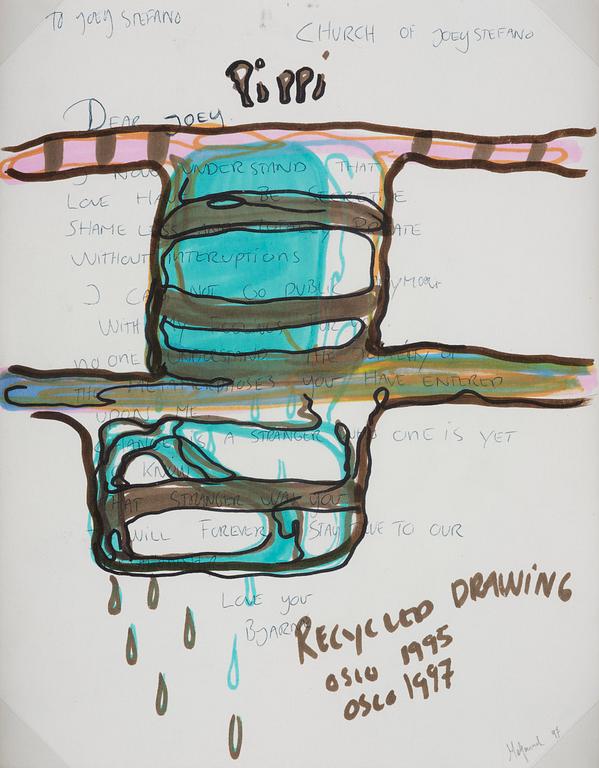 To Joey Stefano
Church of Joey Stefano
Pippi
Dear Joey.
I now understand that
love has be secretive
shame less and private
without interruptions
I can not go public anymore
with my feelings for
no one understand the of
the metamorphoses you have entered
upon me
change is a stranger who one is yet
to know
that stranger was you
I will forever stay true to our
Love you
Bjarne
Recycled Drawing
Oslo 1995
Oslo 1997
Melgaard 97